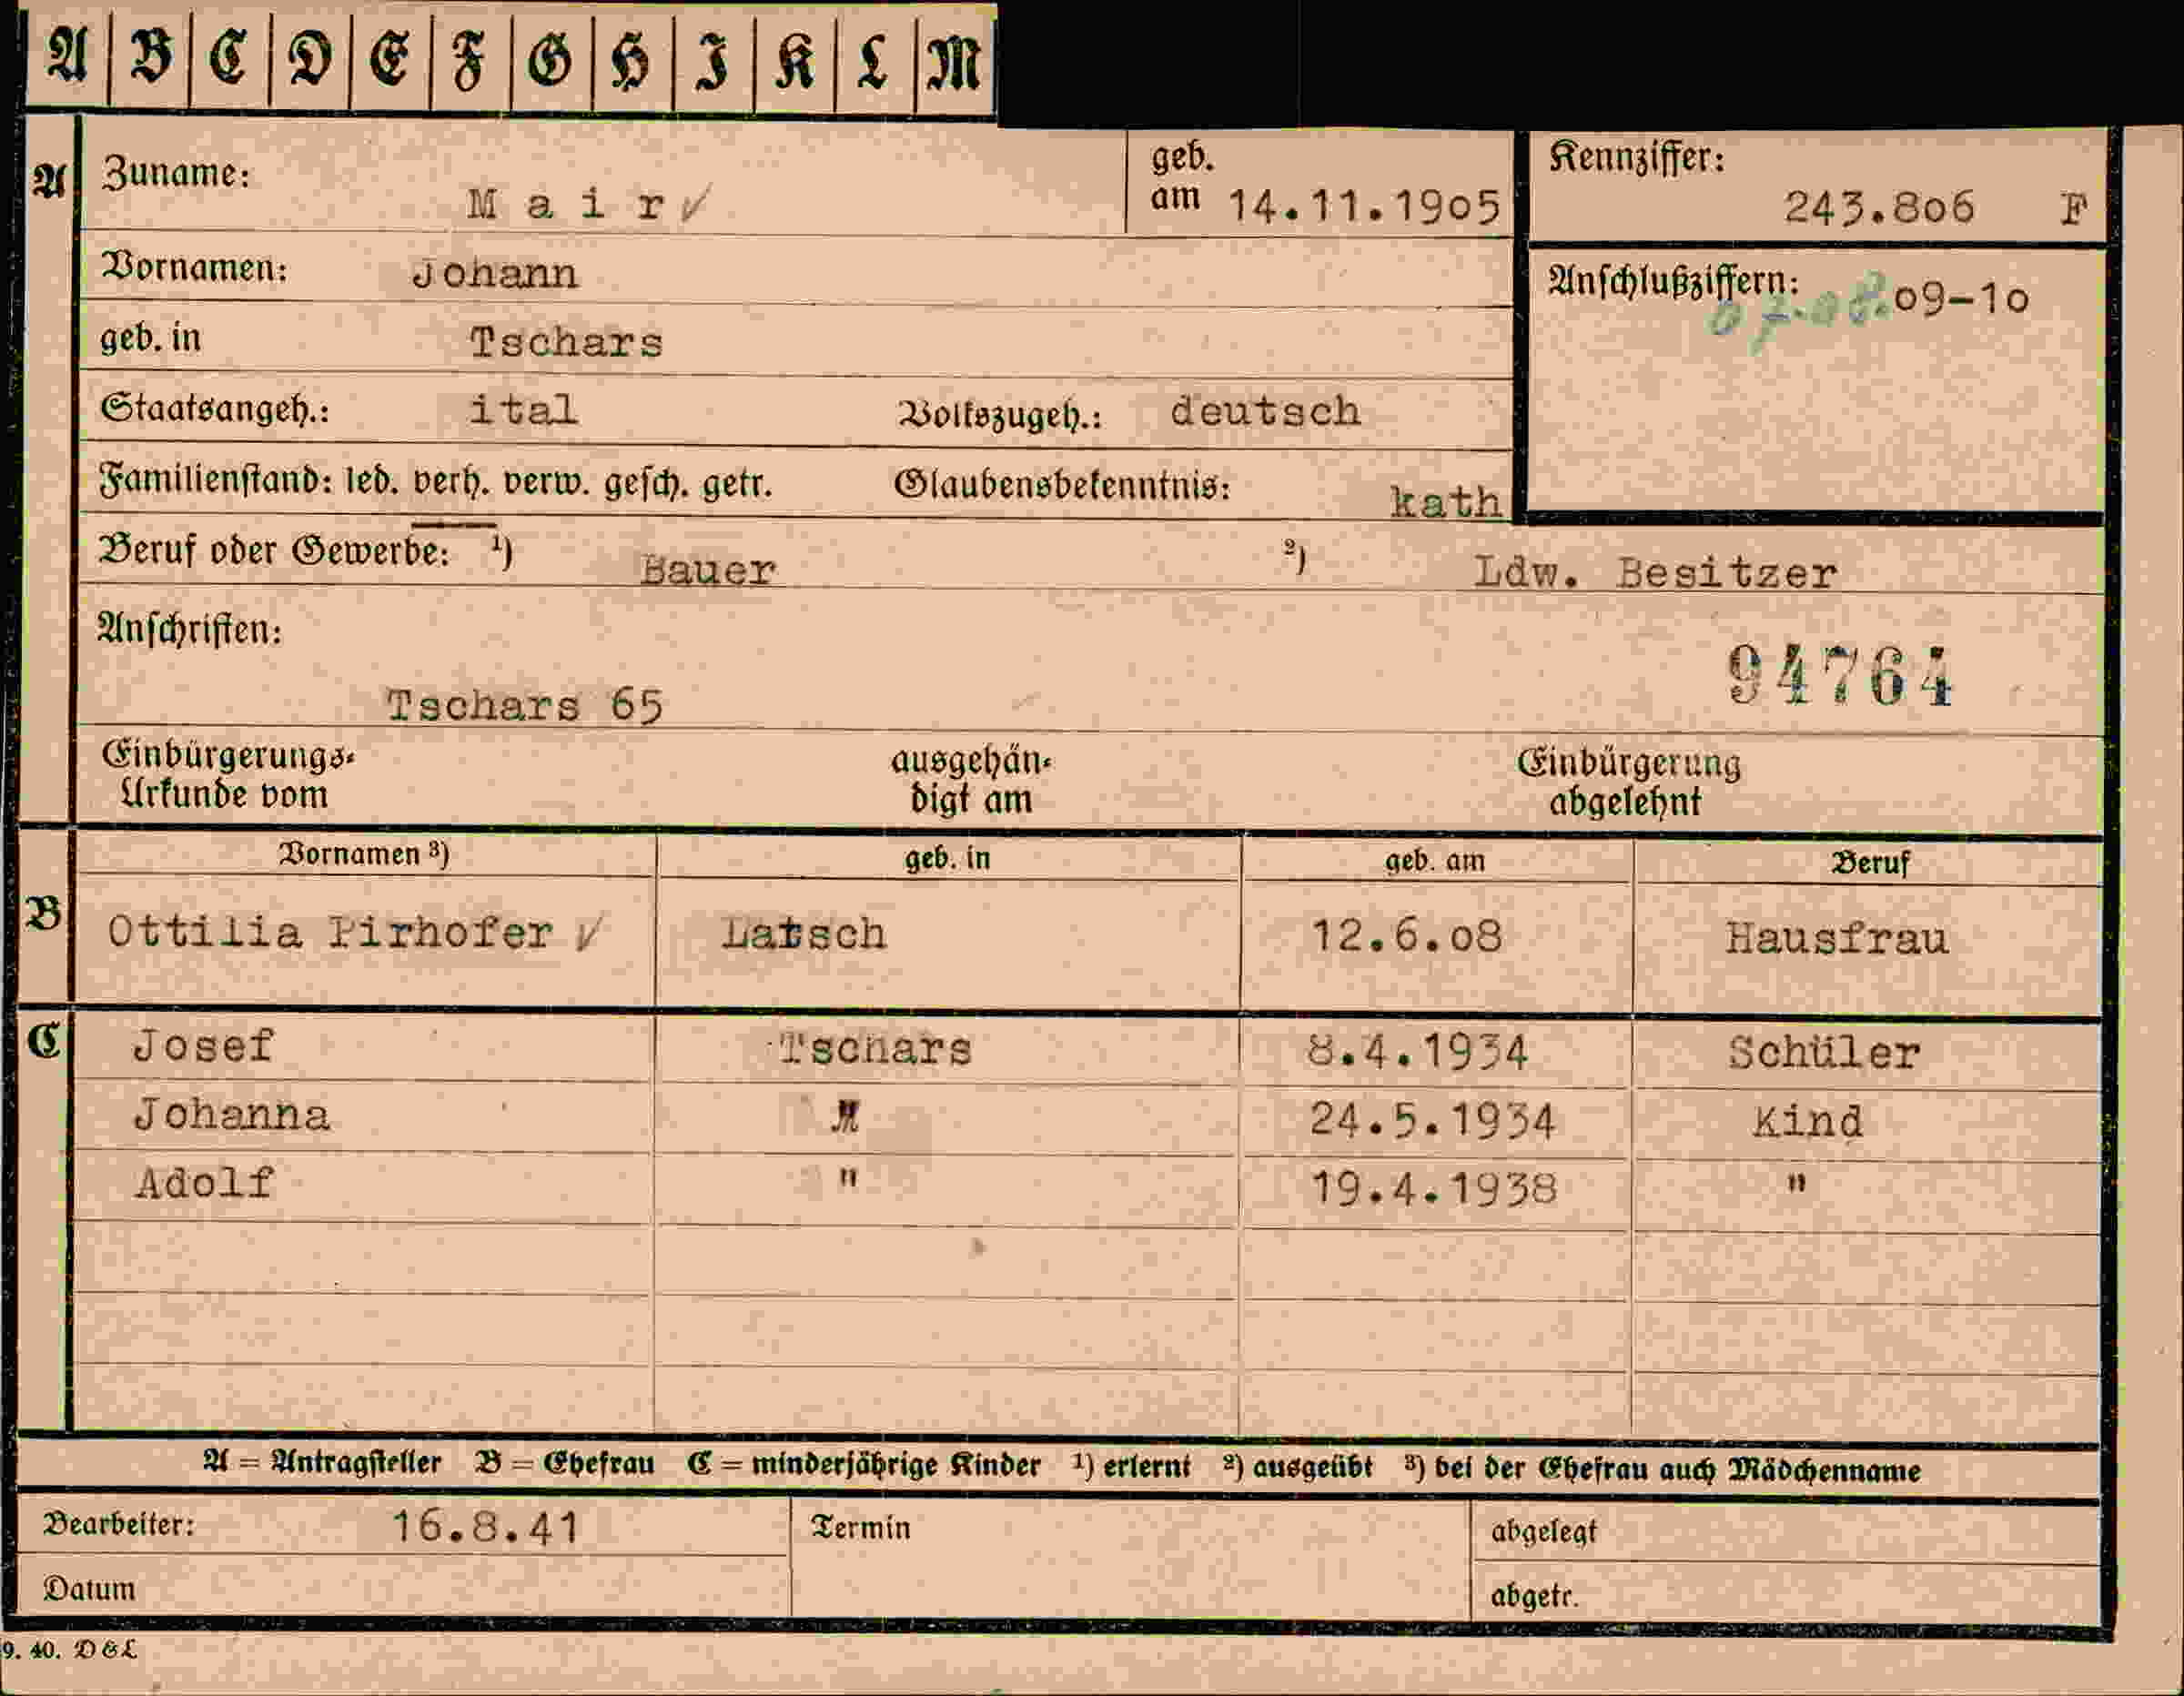 A B C D E F G H I K L M
A Zuname: Mair geb. am 14.11.1905 Kennziffer: 243.806 F
Vornamen: Johann Anschlußziffern: 07.08.09-10
geb. in Tschars
Staatsangeh.: ital Volkszugeh.: deutsch
Familienstand: led. verh. verw. gesch. getr. Glaubensbekenntnis: kath
Beruf oder Gewerbe: ¹) Bauer ²) Ldw. Besitzer
Anschriften:
94764
Tschars 65
Einbürgerungs- ausgehän- Einbürgerung
Urkunde vom digt am abgelehnt
Vornamen ³) geb. in geb. am Beruf
B Ottilia Pirhofer Latsch 12.6.08 Hausfrau
C Josef Tschars 8.4.1934 Schüler
Johanna " 24.5.1934 Kind
Adolf " 19.4.1938 "
A = Antragsteller B = Ehefrau C = minderjährige Kinder ¹) erlernt ²) ausgeübt ³) bei der Ehefrau auch Mädchenname
Bearbeiter: 16.8.41 Termin abgelegt
Datum abgetr.
9. 40. D&L